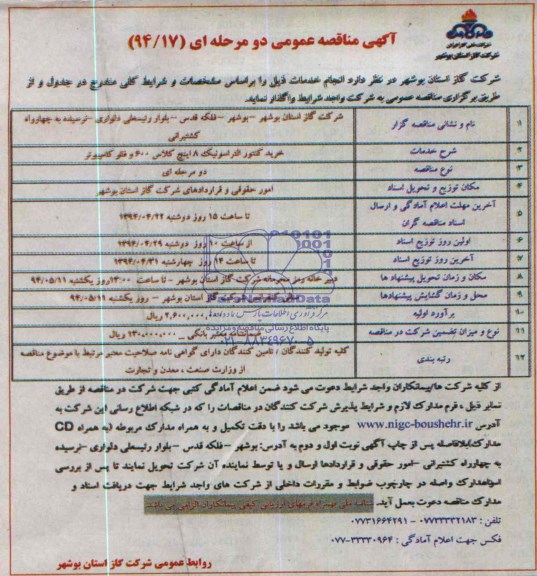 شرکت ملی گاز ایران
شرکت گاز استان بوشهر
آگهی مناقصه عمومی دو مرحله ای (۹۴/۱۷)
شرکت گاز استان بوشهر در نظر دارد انجام خدمات ذیل را براساس مشخصات و شرایط کلی مندرج در جدول و از
طریق برگزاری مناقصه عمومی به شرکت واجد شرایط واگذار نماید.
۱ نام و نشانی مناقصه گزار شرکت گاز استان بوشهر –بوشهر –فلکه قدس –بلوار رئیسعلی دلواری –نرسیده به چهارراه
کشتیرانی
۲ شرح خدمات خرید کنتور التراسونیک ۸ اینچ کلاس ۶۰۰ و فلو کامپیوتر
۳ نوع مناقصه دو مرحله ای
۴ مکان توزیع و تحویل اسناد امور حقوقی و قراردادهای شرکت گاز استان بوشهر
۵ آخرین مهلت اعلام آمادگی و ارسال
اسناد مناقصه گران تا ساعت ۱۵ روز دوشنبه ۱۳۹۴/۰۴/۲۲
۶ اولین روز توزیع اسناد از ساعت ۱۰ روز دوشنبه ۱۳۹۴/۰۴/۲۹
۷ آخرین روز توزیع اسناد تا ساعت ۱۴ روز چهارشنبه ۱۳۹۴/۰۴/۳۱
۸ مکان و زمان تحویل پیشنهاد ها دبیر خانه رمز محرمانه شرکت گاز استان بوشهر – تا ساعت ۱۳:۰۰ روز یکشنبه ۹۴/۰۵/۱۱
۹ محل و زمان گشایش پیشنهادها سالن کنفرانس شرکت گاز استان بوشهر – روز یکشنبه ۹۴/۰۵/۱۱
۱۰ برآورد اولیه ریال
۱۱ نوع و میزان تضمین شرکت در مناقصه ضمانتنامه معتبر بانکی _ ۱۳۰,۰۰۰,۰۰۰ ریال
۱۲ رتبه بندی کلیه تولید کنندگان / تامین کنندگان دارای گواهی نامه صلاحیت معتبر مرتبط با موضوع مناقصه
از وزارت صنعت ، معدن و تجارت
پایگاه اطلاع رسانی مناقصه و مزایده
۰۲۱-۸۸۳۴۹۶۷۰-۵
از کلیه شرکت ها/پیمانکاران واجد شرایط دعوت می شود ضمن اعلام آمادگی کتبی جهت شرکت در مناقصه از طریق
نمابر ذیل ، فرم مدارک لازم و شرایط پذیرش شرکت کنندگان در مناقصات را که در شبکه اطلاع رسانی این شرکت به
آدرس www.nigc-boushehr.ir موجود می باشد را با دقت تکمیل و به همراه مدارک مربوطه (به همراه CD
مدارک)بلافاصله پس از چاپ آگهی نوبت اول و دوم به آدرس: بوشهر –فلکه قدس –بلوار رئیسعلی دلواری –نرسیده
به چهارراه کشتیرانی –امور حقوقی و قراردادها ارسال و یا توسط نماینده آن شرکت تحویل نمایند تا پس از بررسی
اسناد/مدارک واصله در چارچوب ضوابط و مقررات داخلی از شرکت های واجد شرایط جهت دریافت اسناد و
مدارک مناقصه دعوت بعمل آید. ضمناً تکمیل فرمهای ارزیابی کیفی پیمانکاران الزامی می باشد
تلفن : ۰۷۷۳۳۳۲۱۸۳ – ۰۷۷۳۱۶۶۴۲۹۱
فکس جهت اعلام آمادگی : ۳۳۳۳۰۹۶۴–۰۷۷
روابط عمومی شرکت گاز استان بوشهر